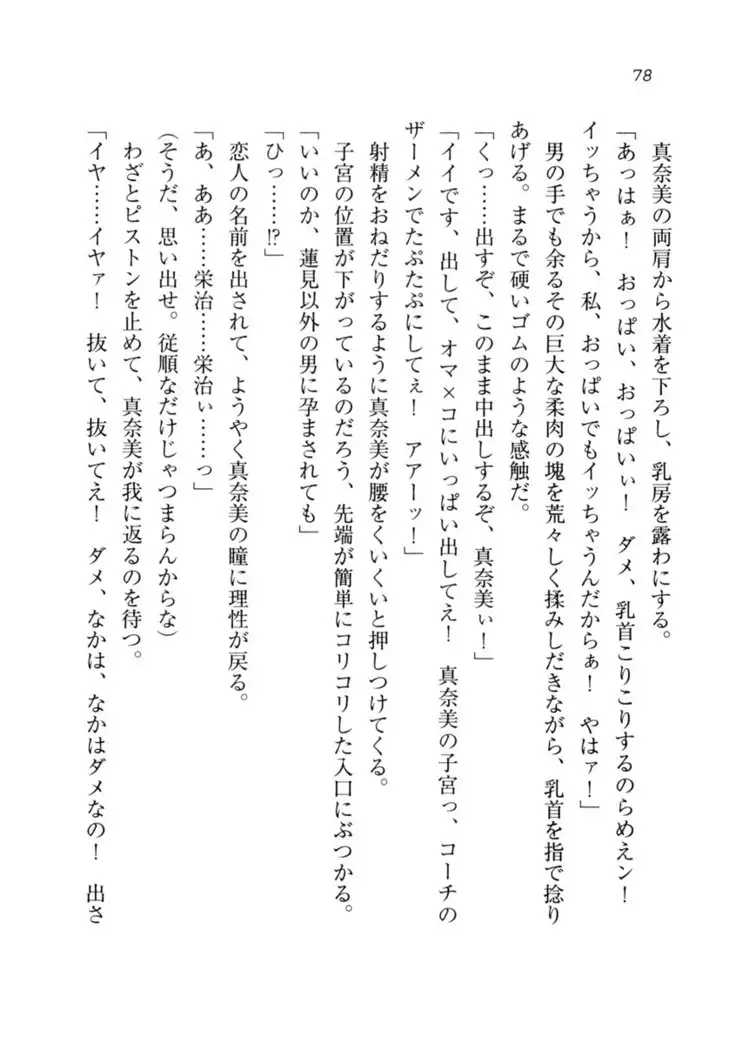 78
真奈美の両肩から水着を下ろし、乳房を露わにする。
「あっはぁ！　おっぱい、おっぱいぃ！　ダメ、乳首こりこりするのらめえン！
イッちゃうから、私、おっぱいでもイッちゃうんだからぁ！　やはァ！」
男の手でも余るその巨大な柔肉の塊を荒々しく揉みしだきながら、乳首を指で捻り
あげる。まるで硬いゴムのような感触だ。
「くっ……出すぞ、このまま中出しするぞ、真奈美ぃ！」
「イイです、出して、オマ×コにいっぱい出してえ！　真奈美の子宮っ、コーチの
ザーメンでたぷたぷにしてぇ！　アアーッ！」
射精をおねだりするように真奈美が腰をくいくいと押しつけてくる。
子宮の位置が下がっているのだろう、先端が簡単にコリコリした入口にぶつかる。
「いいのか、蓮見以外の男に孕まされても」
「ひっ……!?」
恋人の名前を出されて、ようやく真奈美の瞳に理性が戻る。
「あ、ああ……栄治……栄治ぃ……っ」
（そうだ、思い出せ。従順なだけじゃつまらんからな）
わざとピストンを止めて、真奈美が我に返るのを待つ。
「イヤ……イヤァ！　抜いて、抜いてえ！　ダメ、なかは、なかはダメなの！　出さ